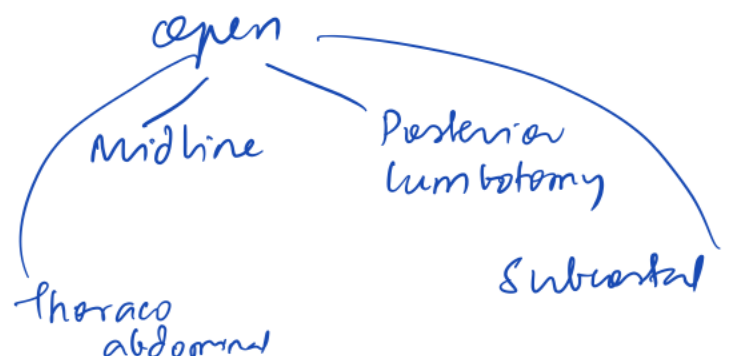 Open
Midline
Posterior
lumbotomy
Subcostal
Thoraco
abdominal